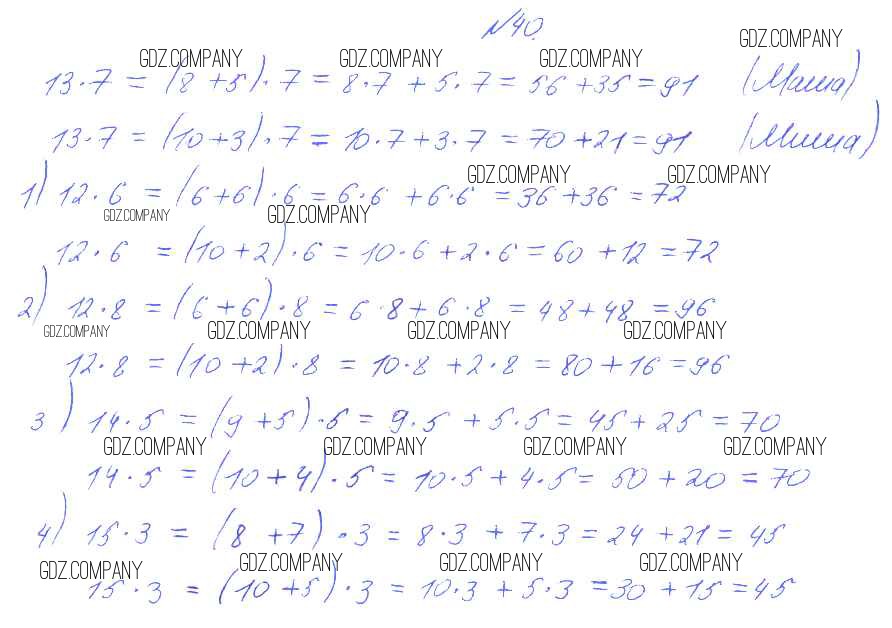 №40.
GDZ.COMPANY GDZ.COMPANY GDZ.COMPANY GDZ.COMPANY
13·7 = (8+5)·7 = 8·7 + 5·7 = 56+35 = 91 (Маша)
13·7 = (10+3)·7 = 10·7+3·7 = 70+21 = 91 (Миша)
GDZ.COMPANY GDZ.COMPANY
1) 12·6 = (6+6)·6 = 6·6 + 6·6 = 36+36 = 72
GDZ.COMPANY GDZ.COMPANY
12·6 = (10+2)·6 = 10·6+2·6 = 60+12 = 72
2) 12·8 = (6+6)·8 = 6·8+6·8 = 48+48 = 96
GDZ.COMPANY GDZ.COMPANY GDZ.COMPANY GDZ.COMPANY
12·8 = (10+2)·8 = 10·8+2·8 = 80+16 = 96
3) 14·5 = (9+5)·5 = 9·5 + 5·5 = 45+25 = 70
GDZ.COMPANY GDZ.COMPANY GDZ.COMPANY GDZ.COMPANY
14·5 = (10+4)·5 = 10·5+4·5 = 50+20 = 70
4) 15·3 = (8+7)·3 = 8·3 + 7·3 = 24+21 = 45
GDZ.COMPANY GDZ.COMPANY GDZ.COMPANY GDZ.COMPANY
15·3 = (10+5)·3 = 10·3+5·3 = 30+15 = 45